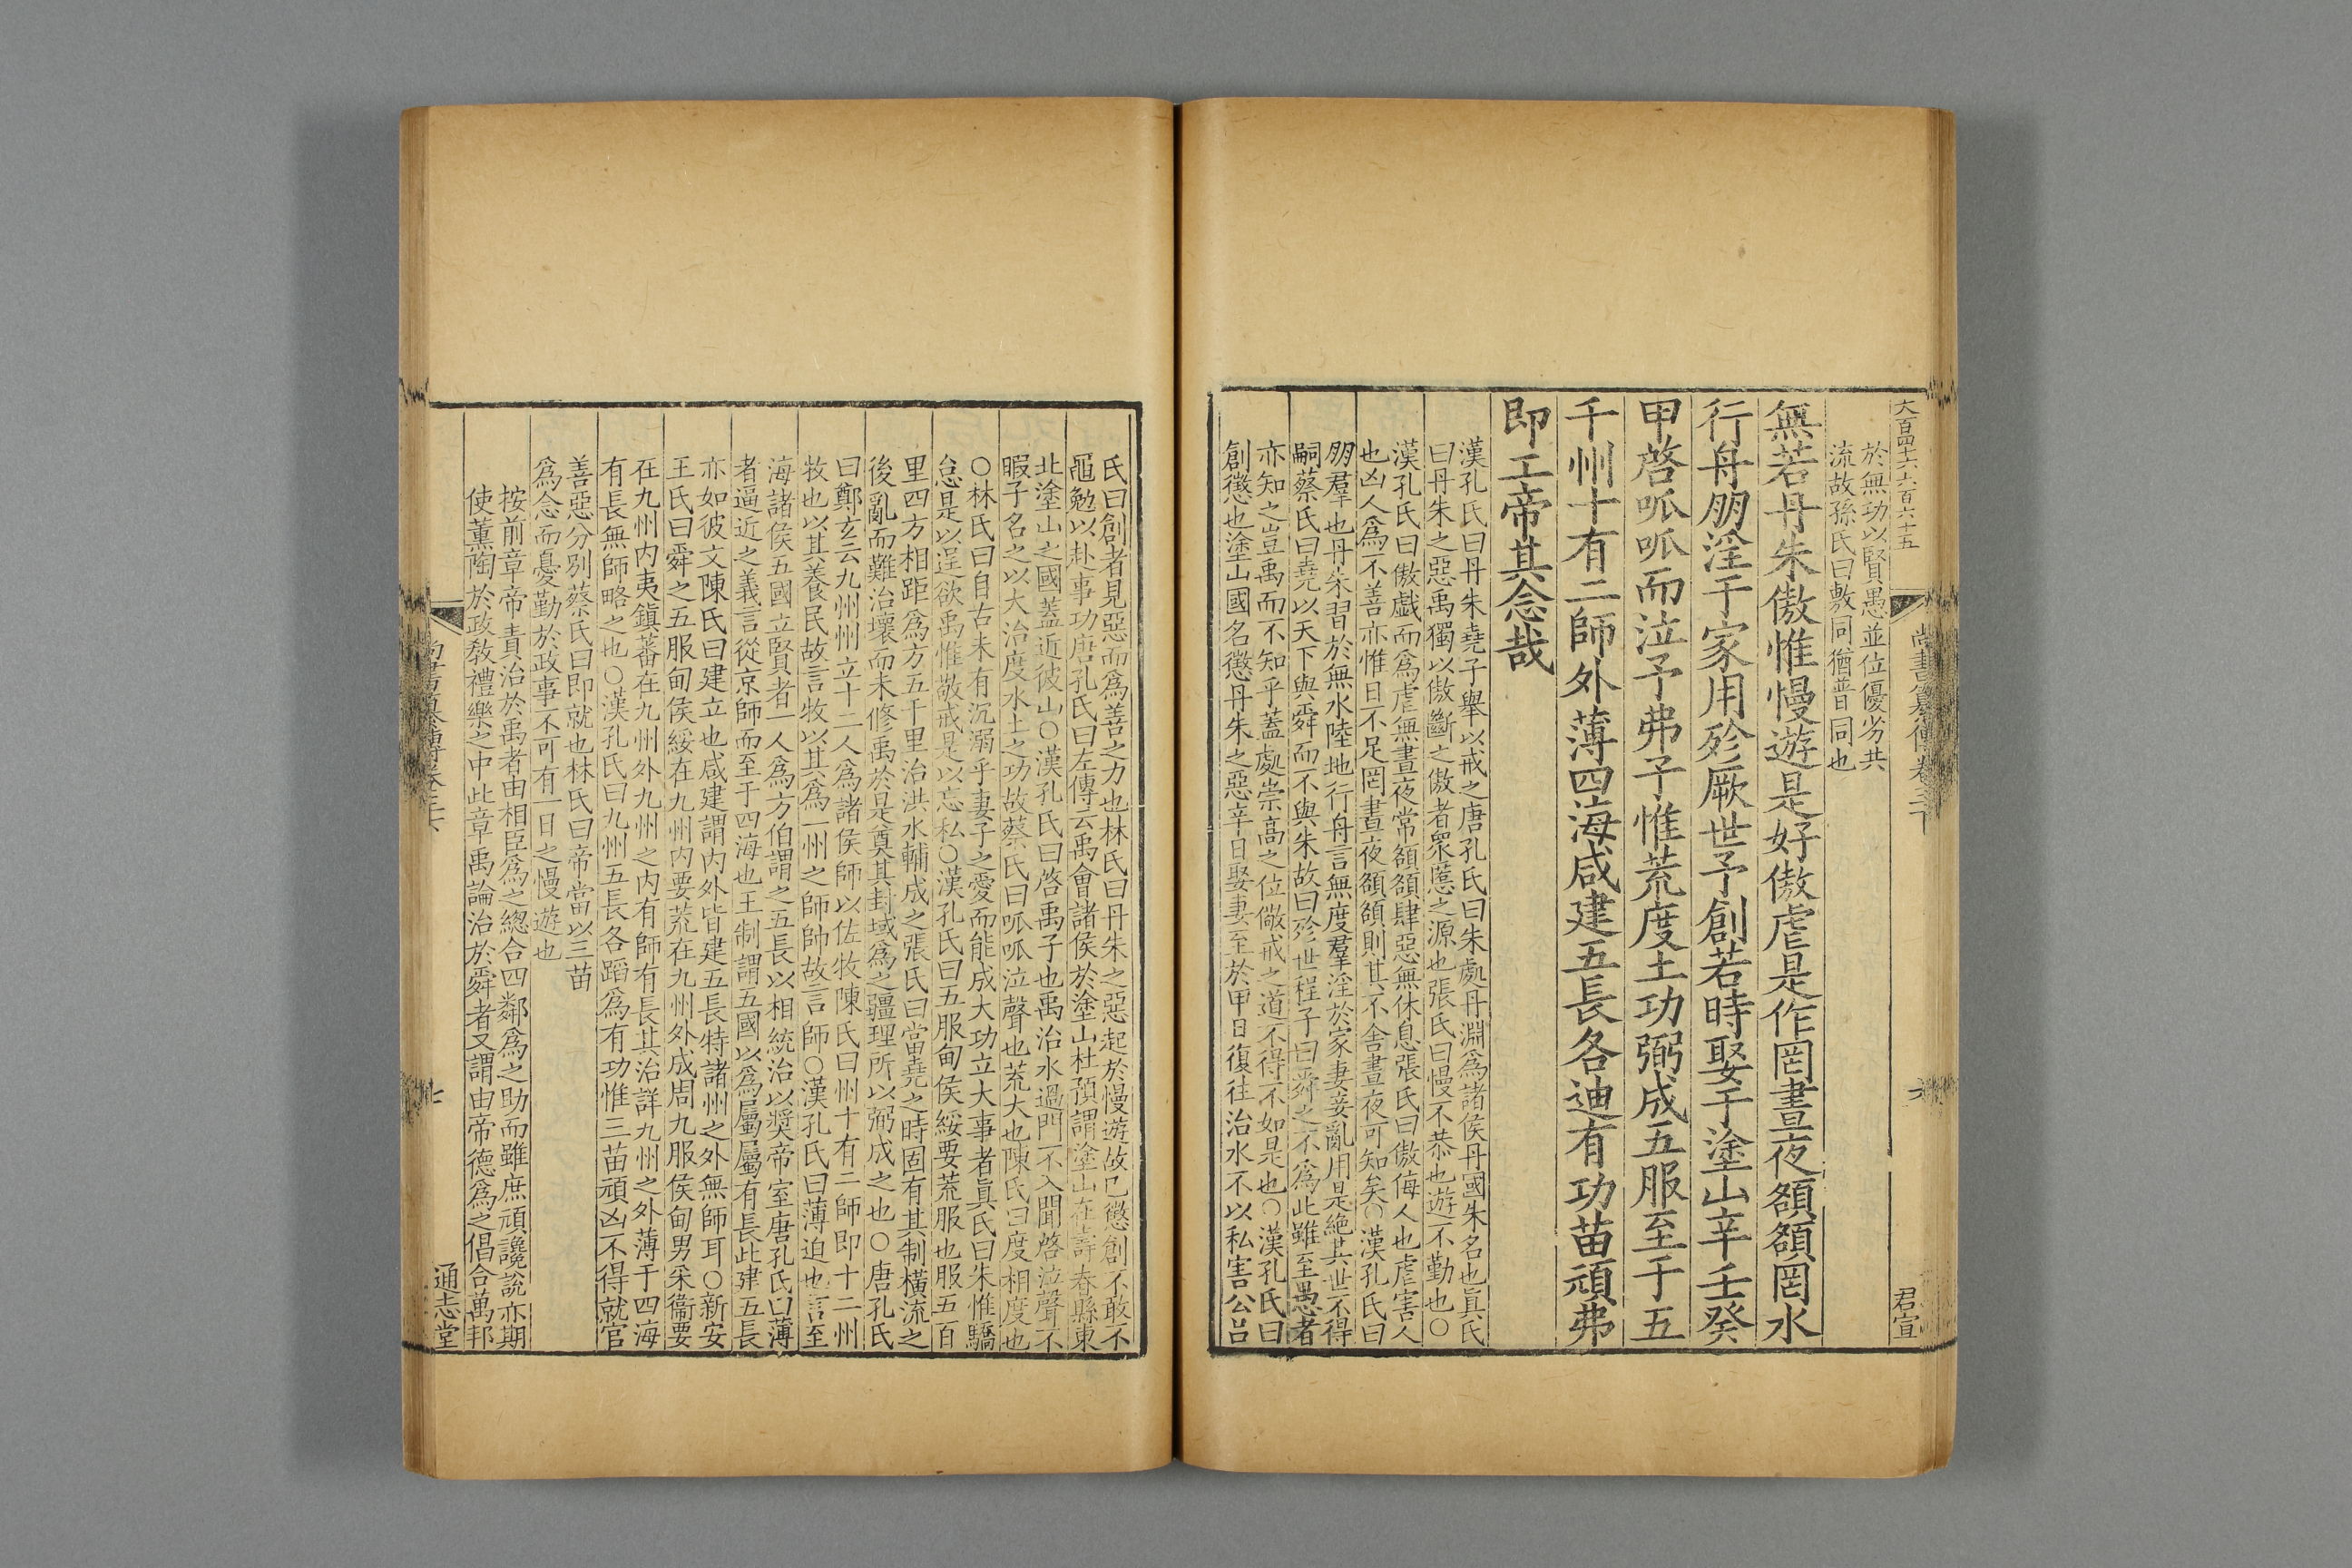 大百四十六六百六十五
君宣
於無功以賢愚並位優劣共
流故孫氏曰敷同猶普同也
無若丹朱傲惟慢遊是好傲虐是作罔晝夜頟頟罔水
行舟朋淫于家用殄厥世予創若時娶于塗山辛壬癸
甲啓呱呱而泣予弗子惟荒度土功弼成五服至于五
千州十有二師外薄四海咸建五長各迪有功苗頑弗
即工帝其念哉
漢孔氏曰丹朱堯子舉以戒之唐孔氏曰朱處丹淵爲諸侯丹國朱名也眞氏
曰丹朱之惡禹獨以傲斷之傲者衆慝之源也張氏曰慢不恭也遊不勤也○
漢孔氏曰傲戲而爲虐無晝夜常頟頟肆惡無休息張氏曰傲侮人也虐害人
也凶人爲不善亦惟日不足罔晝夜頟頟則其不舍晝夜可知矣○漢孔氏曰
朋羣也丹朱習於無水陸地行舟言無度羣淫於家妻妾亂用是絶其世不得
嗣蔡氏曰堯以天下與舜而不與朱故曰殄世程子曰舜之不爲此雖至愚者
亦知之豈禹而不知乎蓋處崇高之位儆戒之道不得不如是也○漢孔氏曰
創懲也塗山國名懲丹朱之惡辛日娶妻至於甲日復往治水不以私害公呂
氏曰創者見惡而爲善之力也林氏曰丹朱之惡起於慢遊故已懲創不敢不
黽勉以赴事功唐孔氏曰左傳云禹會諸侯於塗山杜預謂塗山在壽春縣東
北塗山之國蓋近彼山○漢孔氏曰啓禹子也禹治水過門不入聞啓泣聲不
暇子名之以大治度水土之功故蔡氏曰呱呱泣聲也荒大也陳氏曰度相度也
○林氏曰自古未有沉溺乎妻子之愛而能成大功立大事者眞氏曰朱惟驕
怠是以逞欲禹惟敬戒是以忘私○漢孔氏曰五服甸侯綏要荒服也服五百
里四方相距爲方五千里治洪水輔成之張氏曰當堯之時固有其制橫流之
後亂而難治壞而未修禹於是奠其封域爲之疆理所以弼成之也○唐孔氏
曰鄭玄云九州州立十二人爲諸侯師以佐牧陳氏曰州十有二師即十二州
牧也以其養民故言牧以其爲一州之師帥故言師○漢孔氏曰薄迫也言至
海諸侯五國立賢者一人爲方伯謂之五長以相統治以奬帝室唐孔氏曰薄
者逼近之義言從京師而至于四海也王制謂五國以爲屬屬有長此建五長
亦如彼文陳氏曰建立也咸建謂内外皆建五長特諸州之外無師耳○新安
王氏曰舜之五服甸侯綏在九州内要荒在九州外成周九服侯甸男采衞要
在九州内夷鎭蕃在九州外九州之内有師有長其治詳九州之外薄于四海
有長無師略之也○漢孔氏曰九州五長各蹈爲有功惟三苗頑凶不得就官
善惡分别蔡氏曰即就也林氏曰帝當以三苗
爲念而憂勤於政事不可有一日之慢遊也
按前章帝責治於禹者由相臣爲之總合四鄰爲之助而雖庶頑讒說亦期
使薰陶於政敎禮樂之中此章禹論治於舜者又謂由帝德爲之倡合萬邦
通志堂